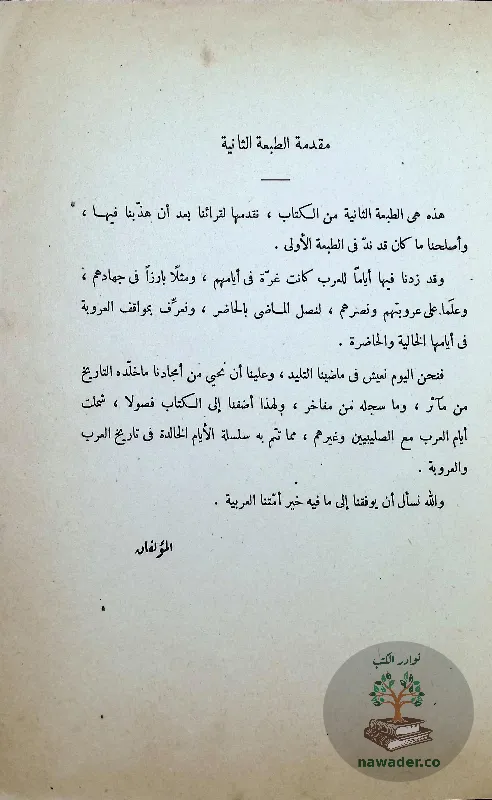 مقدمة الطبعة الثانية
هذه هى الطبعة الثانية من الكتاب ، نقدمها لقرائنا بعد أن هذّبنا فيهـا ،
وأصلحنا ما كان قد ندّ فى الطبعة الأولى .
وقد زدنا فيها أياماً للعرب كانت غرّة فى أيامهم ، ومثلًا بارزاً فى جهادهم ،
وعلَما على عروبتهم ونصرهم ، لنصل المـاضى بالحاضر ، ونعرِّف بمواقف العروبة
فى أيامها الخالية والحاضرة .
فنحن اليوم نعيش فى ماضينا التليد ، وعلينا أن نحيي من أمجادنا ماخلّده التاريخ
من مآثر ، وما سجله من مفاخر ، ولهذا أضفنا إلى الكتاب فصولا ، شملت
أيام العرب مع الصليبيين وغيرهم ، مما تتم به سلسلة الأيام الخالدة فى تاريخ العرب
والعروبة .
والله نسأل أن يوفقنا إلى ما فيه خير أمّتنا العربية .
المؤلفان
نوادر الكتب
nawader.co